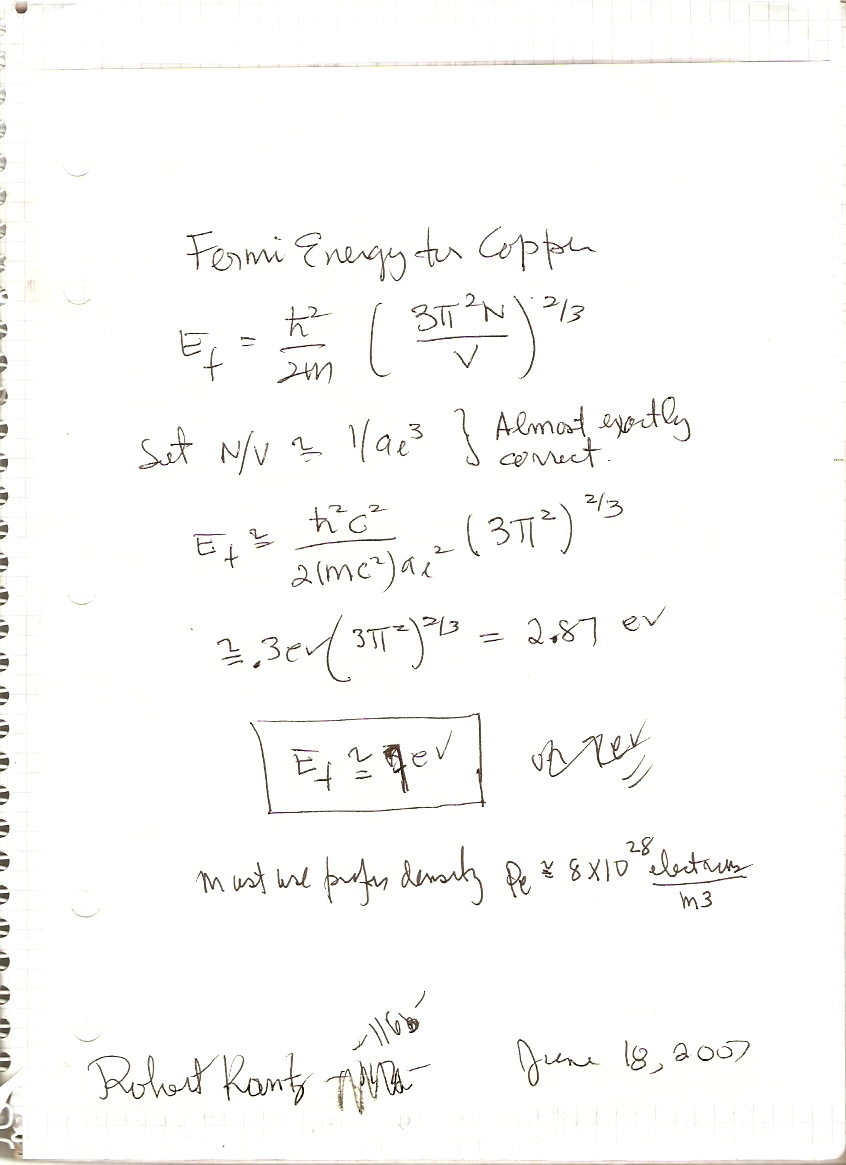 Fermi Energy for Copper
E_f = ħ²/2m (3π²N/V)^2/3
Set N/V ≅ 1/a_e³ } Almost exactly correct.
E_f ≅ ħ²c²/2(mc²)a_e² (3π²)^2/3
≅ .3ev(3π²)^2/3 = 2.87 ev
E_f ≅ 7ev
must use proper density ρe ≅ 8X10^28 electrons/m3
Robert Kantz June 18, 2007